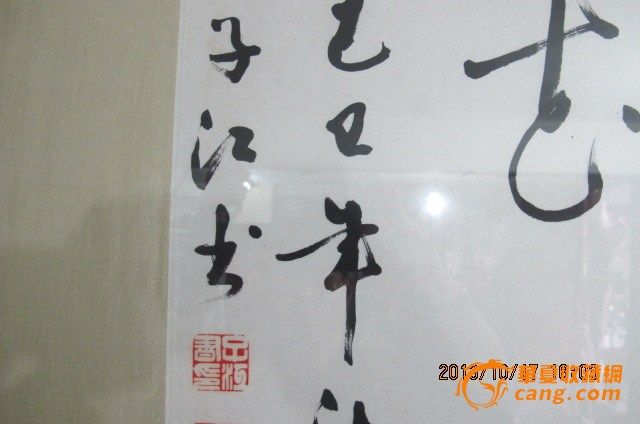 己丑年
子江书
2013/10/17
華夏收藏網
cang.com